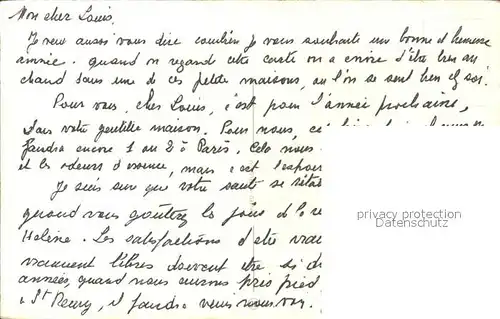 Mon cher Louis,
Je veux aussi vous dire combien je vous souhaite une bonne et heureuse
année. quand on regard cette carte on a envie d'être bien au
chaud dans une de ces petite maisons, où l'on se sent bien chez soi.
Pour vous, cher Louis, c'est pour l'année prochaine,
dans votre gentille maison. Pour nous,
faudra encore 1 ou 2 à Paris. Cela nous
et les odeurs d'essence, mais c'est l'espoir
Je suis sûr que votre santé se rétab
quand vous goûterez les joies de la re
Hélène. Les satisfactions d'être vrai
vraiment libres doivent être si
années, quand nous aurons pris pied
à St Remy, il faudra venir nous voir.
privacy protection
www.oldthing.de